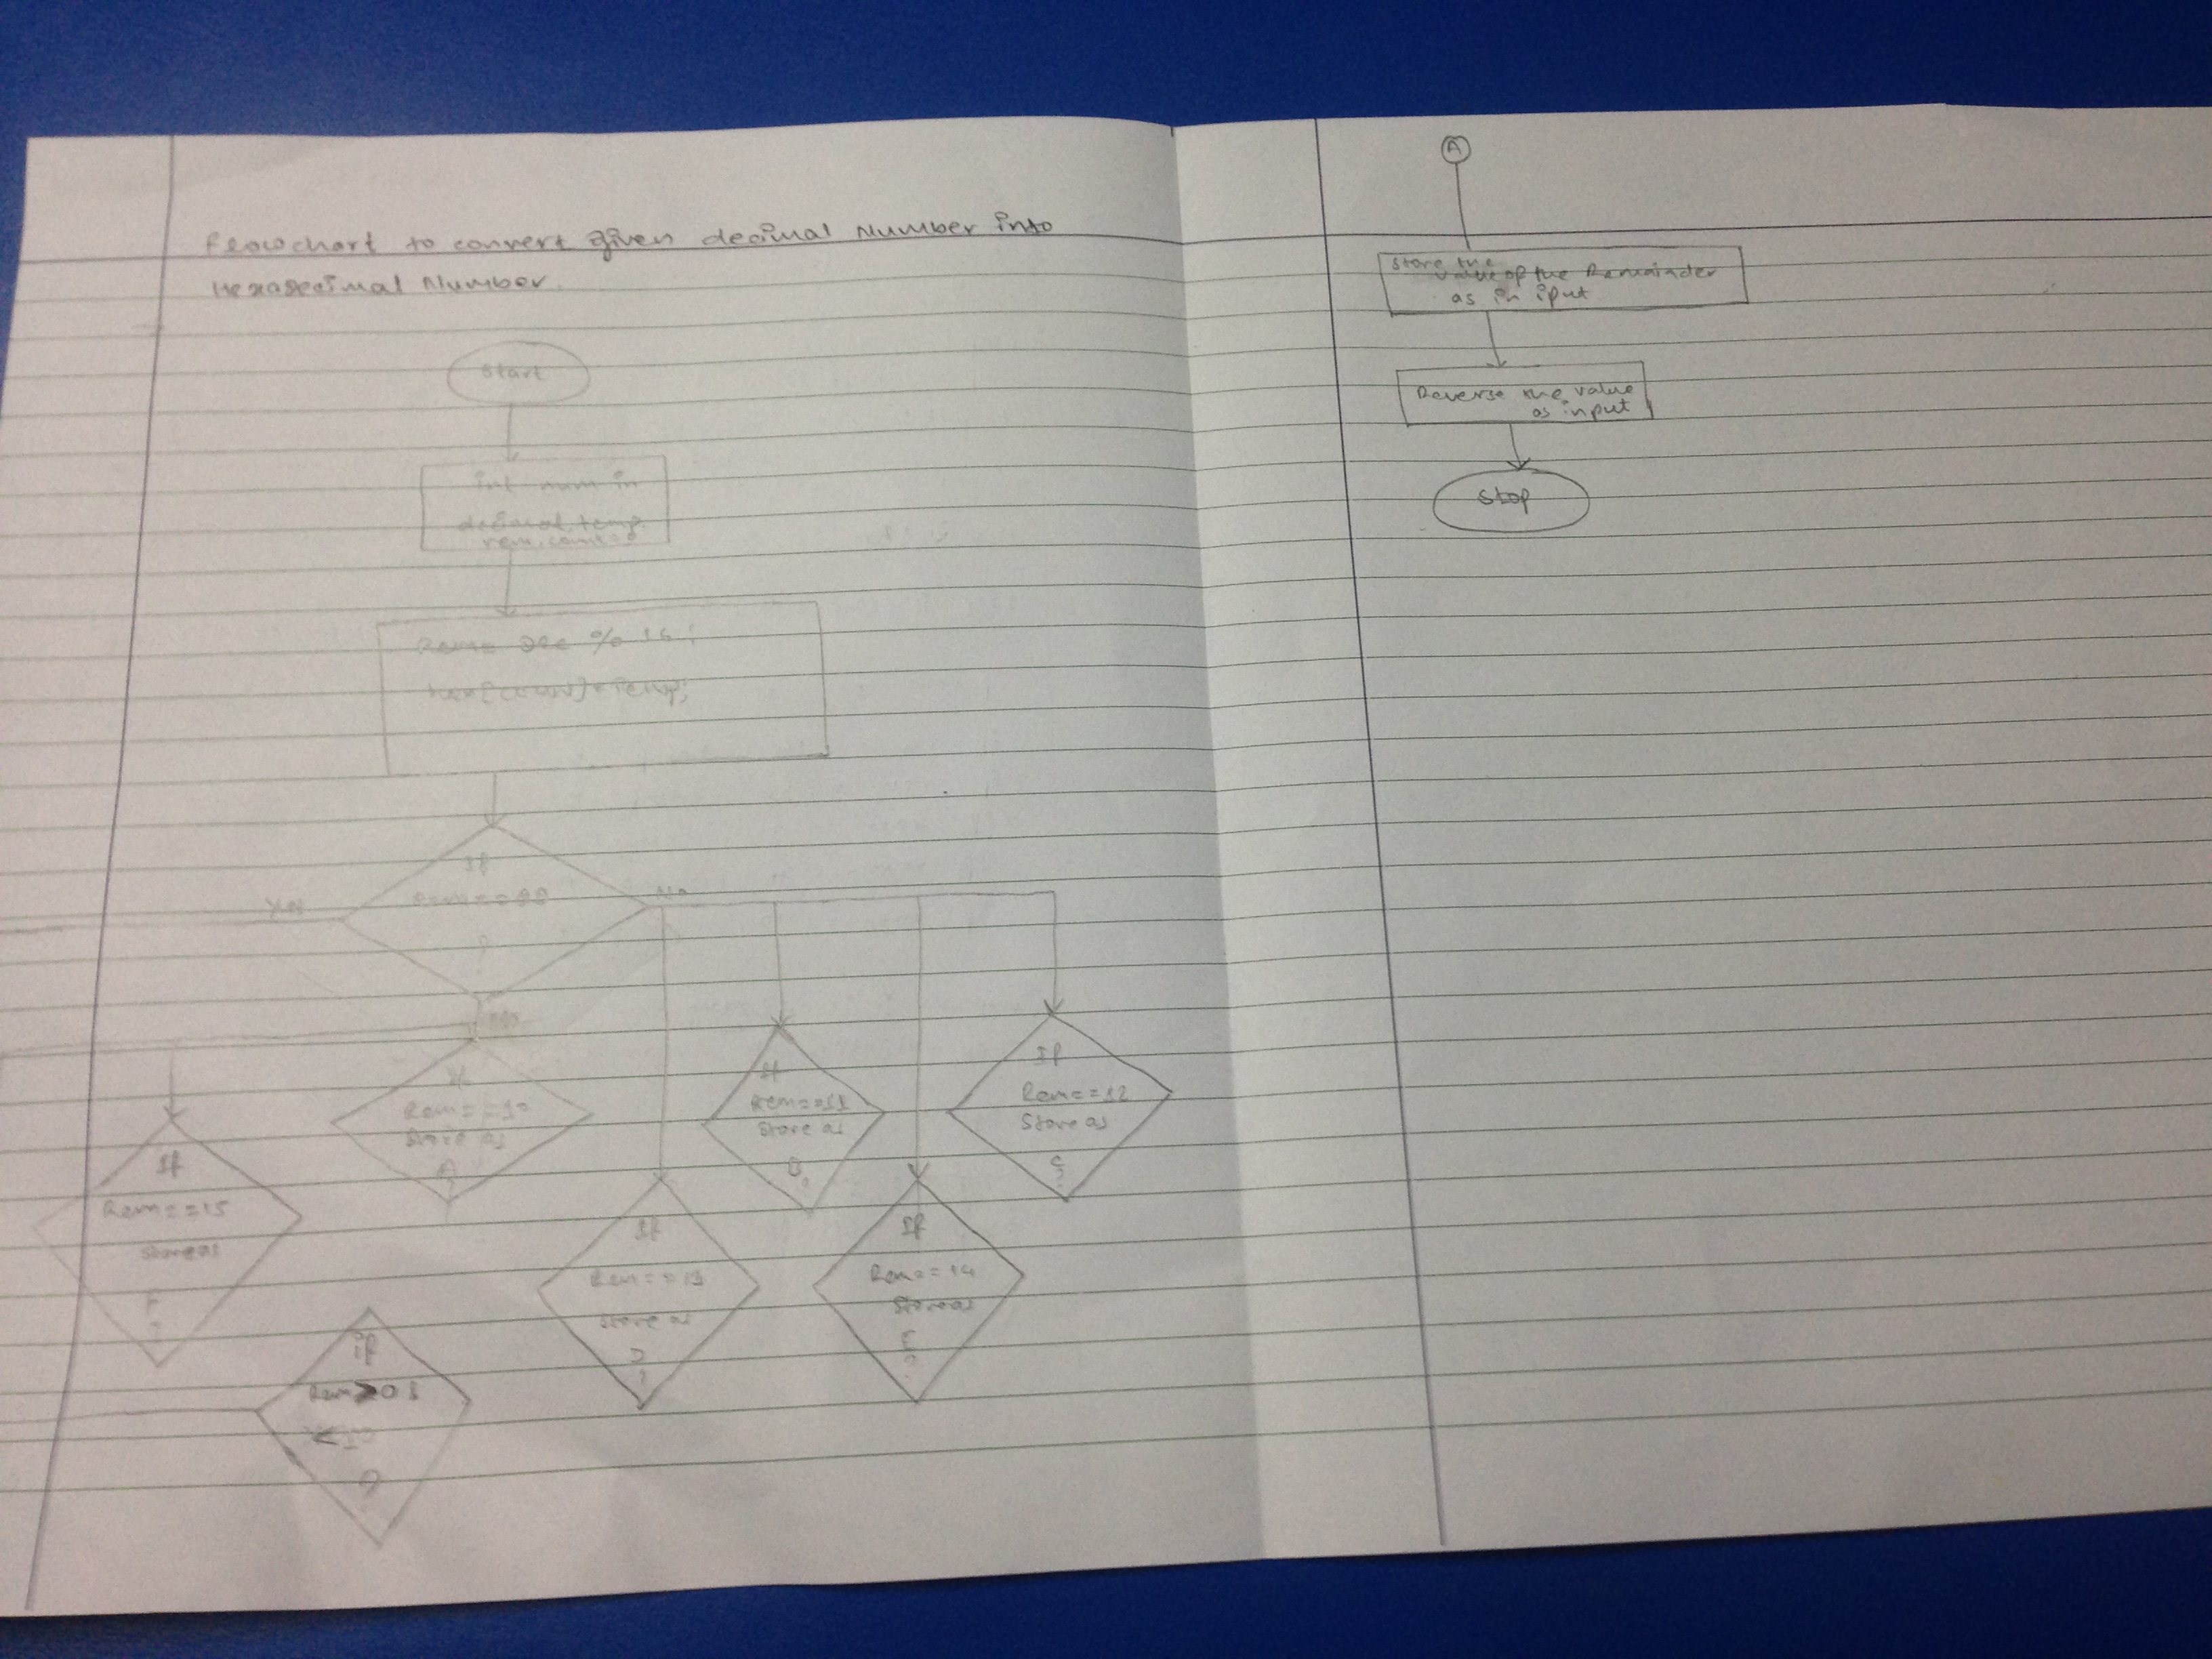 Flowchart to convert given decimal Number into
Hexadecimal Number.
Start
int num in
decimal, temp,
rem, count = 0
Rem = Dec % 16;
Temp;
If
Rem ==
?
Yes
No
If
Rem == 10
Store as
A
?
If
Rem == 11
Store as
B
?
If
Rem == 12
Store as
C
?
If
Rem == 15
Store as
F
?
If
Rem == 13
Store as
D
?
If
Rem == 14
Store as
E
?
if
Rem > 0
< 10
?
A
Store the
value of the Remainder
as in iput
Reverse the value
as input
Stop